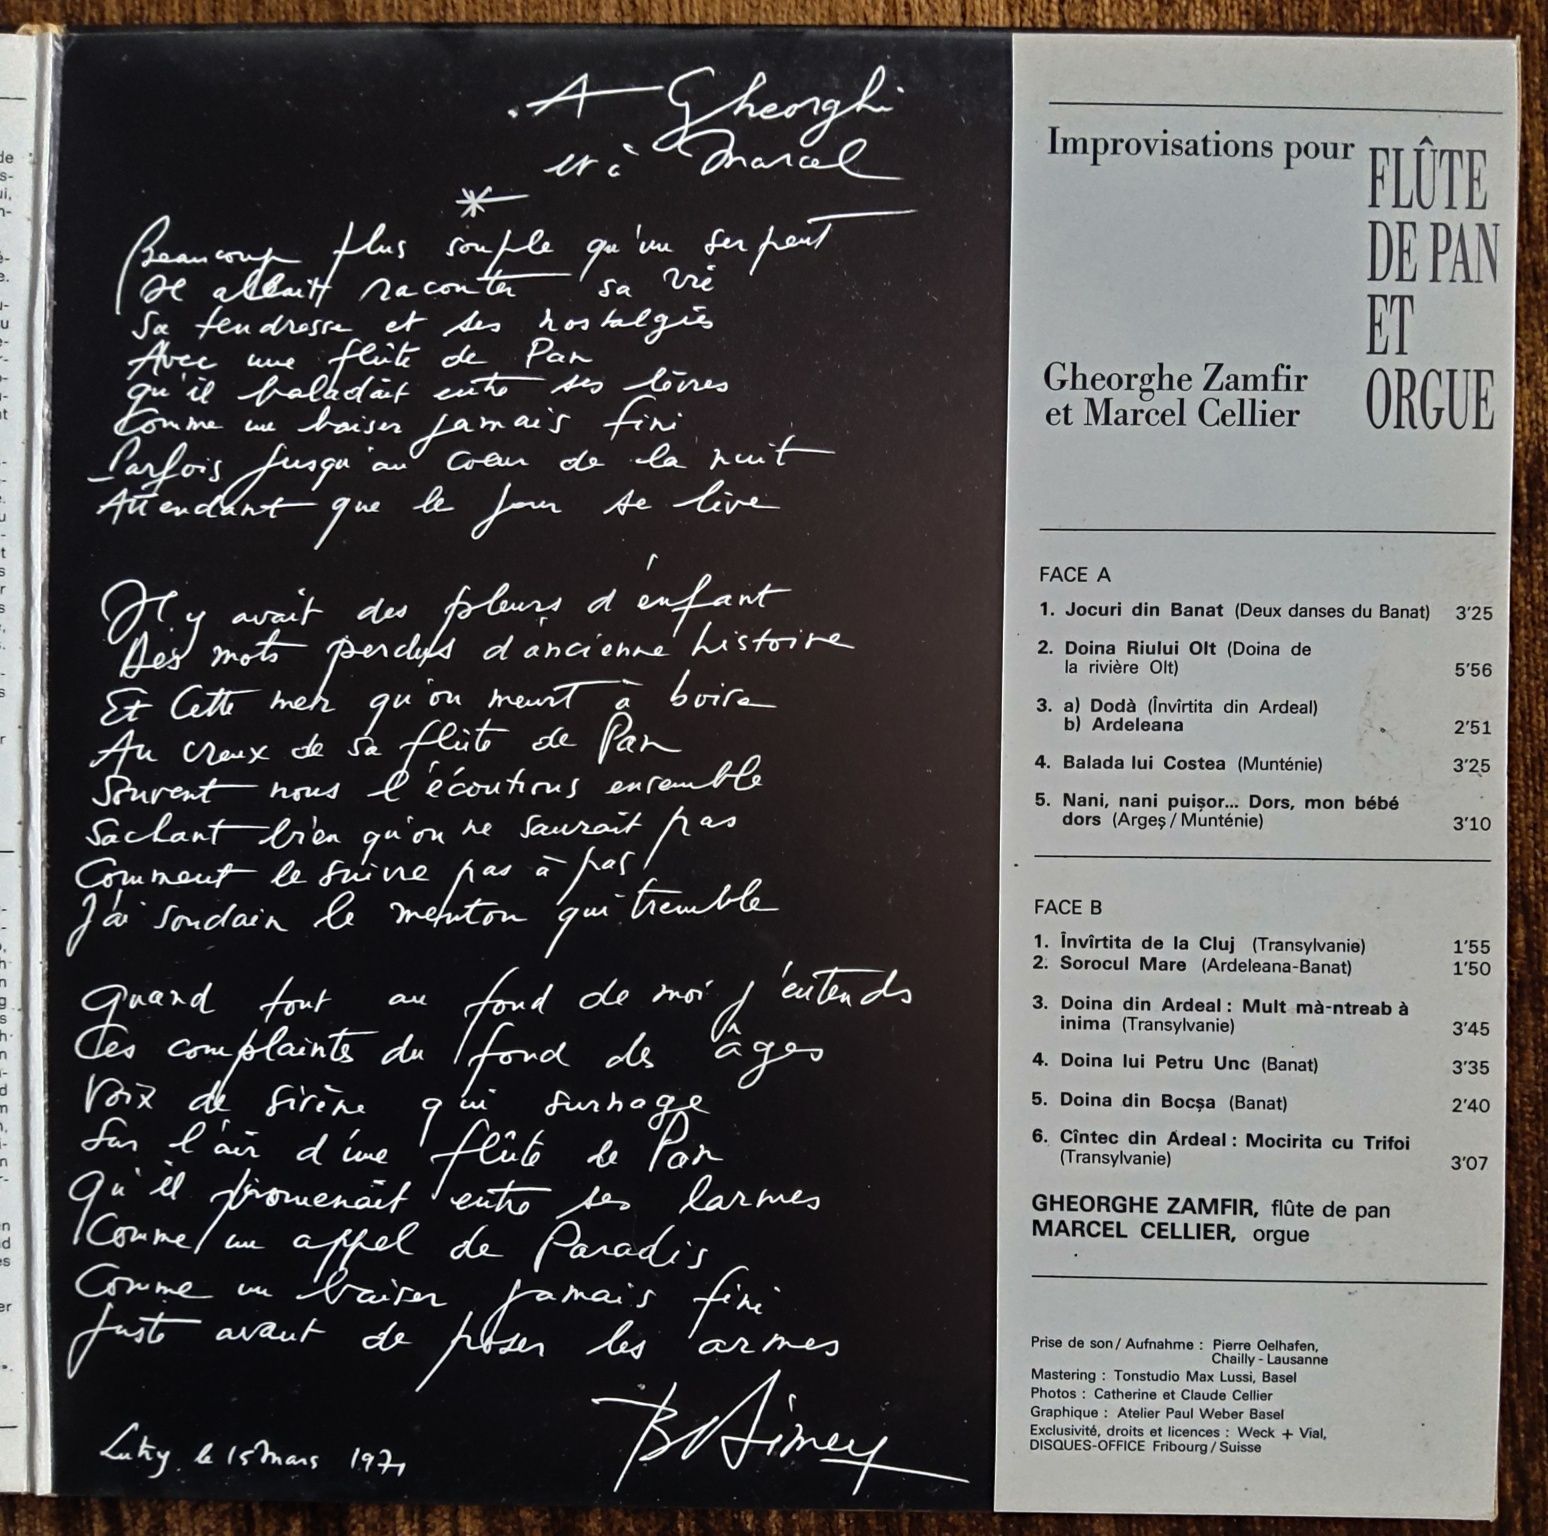 A Gheorghi
et à Marcel
Beaucoup plus souple qu'un serpent
Il allait raconter sa vie
Sa tendresse et ses nostalgies
Avec une flûte de Pan
qu'il baladait entre ses lèvres
Comme un baiser jamais fini
Parfois jusqu'au cœur de la nuit
Attendant que le jour se lève
Il y avait des pleurs d'enfant
Des mots perdus d'ancienne histoire
Et Cette mer qu'on meurt à boire
Au creux de sa flûte de Pan
Souvent nous l'écoutions ensemble
Sachant bien qu'on ne saurait pas
Comment le suivre pas à pas
J'ai soudain le menton qui tremble
Quand tout au fond de moi j'entends
Ces complaintes du fond des âges
Voix de sirène qui surnage
Sur l'air d'une flûte de Pan
Qu'il promenait entre ses larmes
Comme un appel de Paradis
Comme un baiser jamais fini
Juste avant de poser les armes
Lutry. le 15 Mars 1971
Improvisations pour FLÛTE
DE PAN
ET
ORGUE
Gheorghe Zamfir
et Marcel Cellier
FACE A
1. Jocuri din Banat (Deux danses du Banat) 3'25
2. Doina Riului Olt (Doina de
la rivière Olt) 5'56
3. a) Dodà (Învîrtita din Ardeal)
b) Ardeleana 2'51
4. Balada lui Costea (Munténie) 3'25
5. Nani, nani puişor... Dors, mon bébé
dors (Argeş / Munténie) 3'10
FACE B
1. Învîrtita de la Cluj (Transylvanie) 1'55
2. Sorocul Mare (Ardeleana-Banat) 1'50
3. Doina din Ardeal : Mult mà-ntreab à
inima (Transylvanie) 3'45
4. Doina lui Petru Unc (Banat) 3'35
5. Doina din Bocşa (Banat) 2'40
6. Cîntec din Ardeal : Mocirita cu Trifoi
(Transylvanie) 3'07
GHEORGHE ZAMFIR, flûte de pan
MARCEL CELLIER, orgue
Prise de son / Aufnahme : Pierre Oelhafen,
Chailly - Lausanne
Mastering : Tonstudio Max Lussi, Basel
Photos : Catherine et Claude Cellier
Graphique : Atelier Paul Weber Basel
Exclusivité, droits et licences : Weck + Vial,
DISQUES-OFFICE Fribourg / Suisse